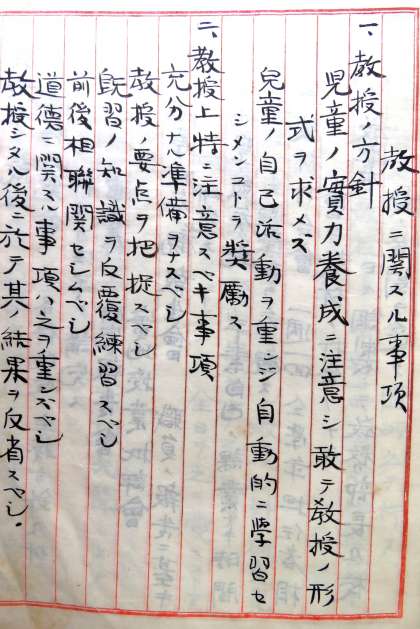 教授ニ関スル事項
一、教授ノ方針
児童ノ實力養成ニ注意シ敢テ教授ノ形
式ヲ求メズ
兒童ノ自己活動ヲ重ンジ自動的ニ学習セ
シメンコトヲ奨勵ス
二、教授上特ニ注意スベキ事項
充分ナル準備ヲナスベシ
教授ノ要点ヲ把捉スベシ
既習ノ知識ヲ反覆練習スベシ
前後相聯関セシムベシ
道徳ニ関スル事項ハ之ヲ重ンズベシ
教授シタル後ニ於テ其ノ結果ヲ反省スベシ。